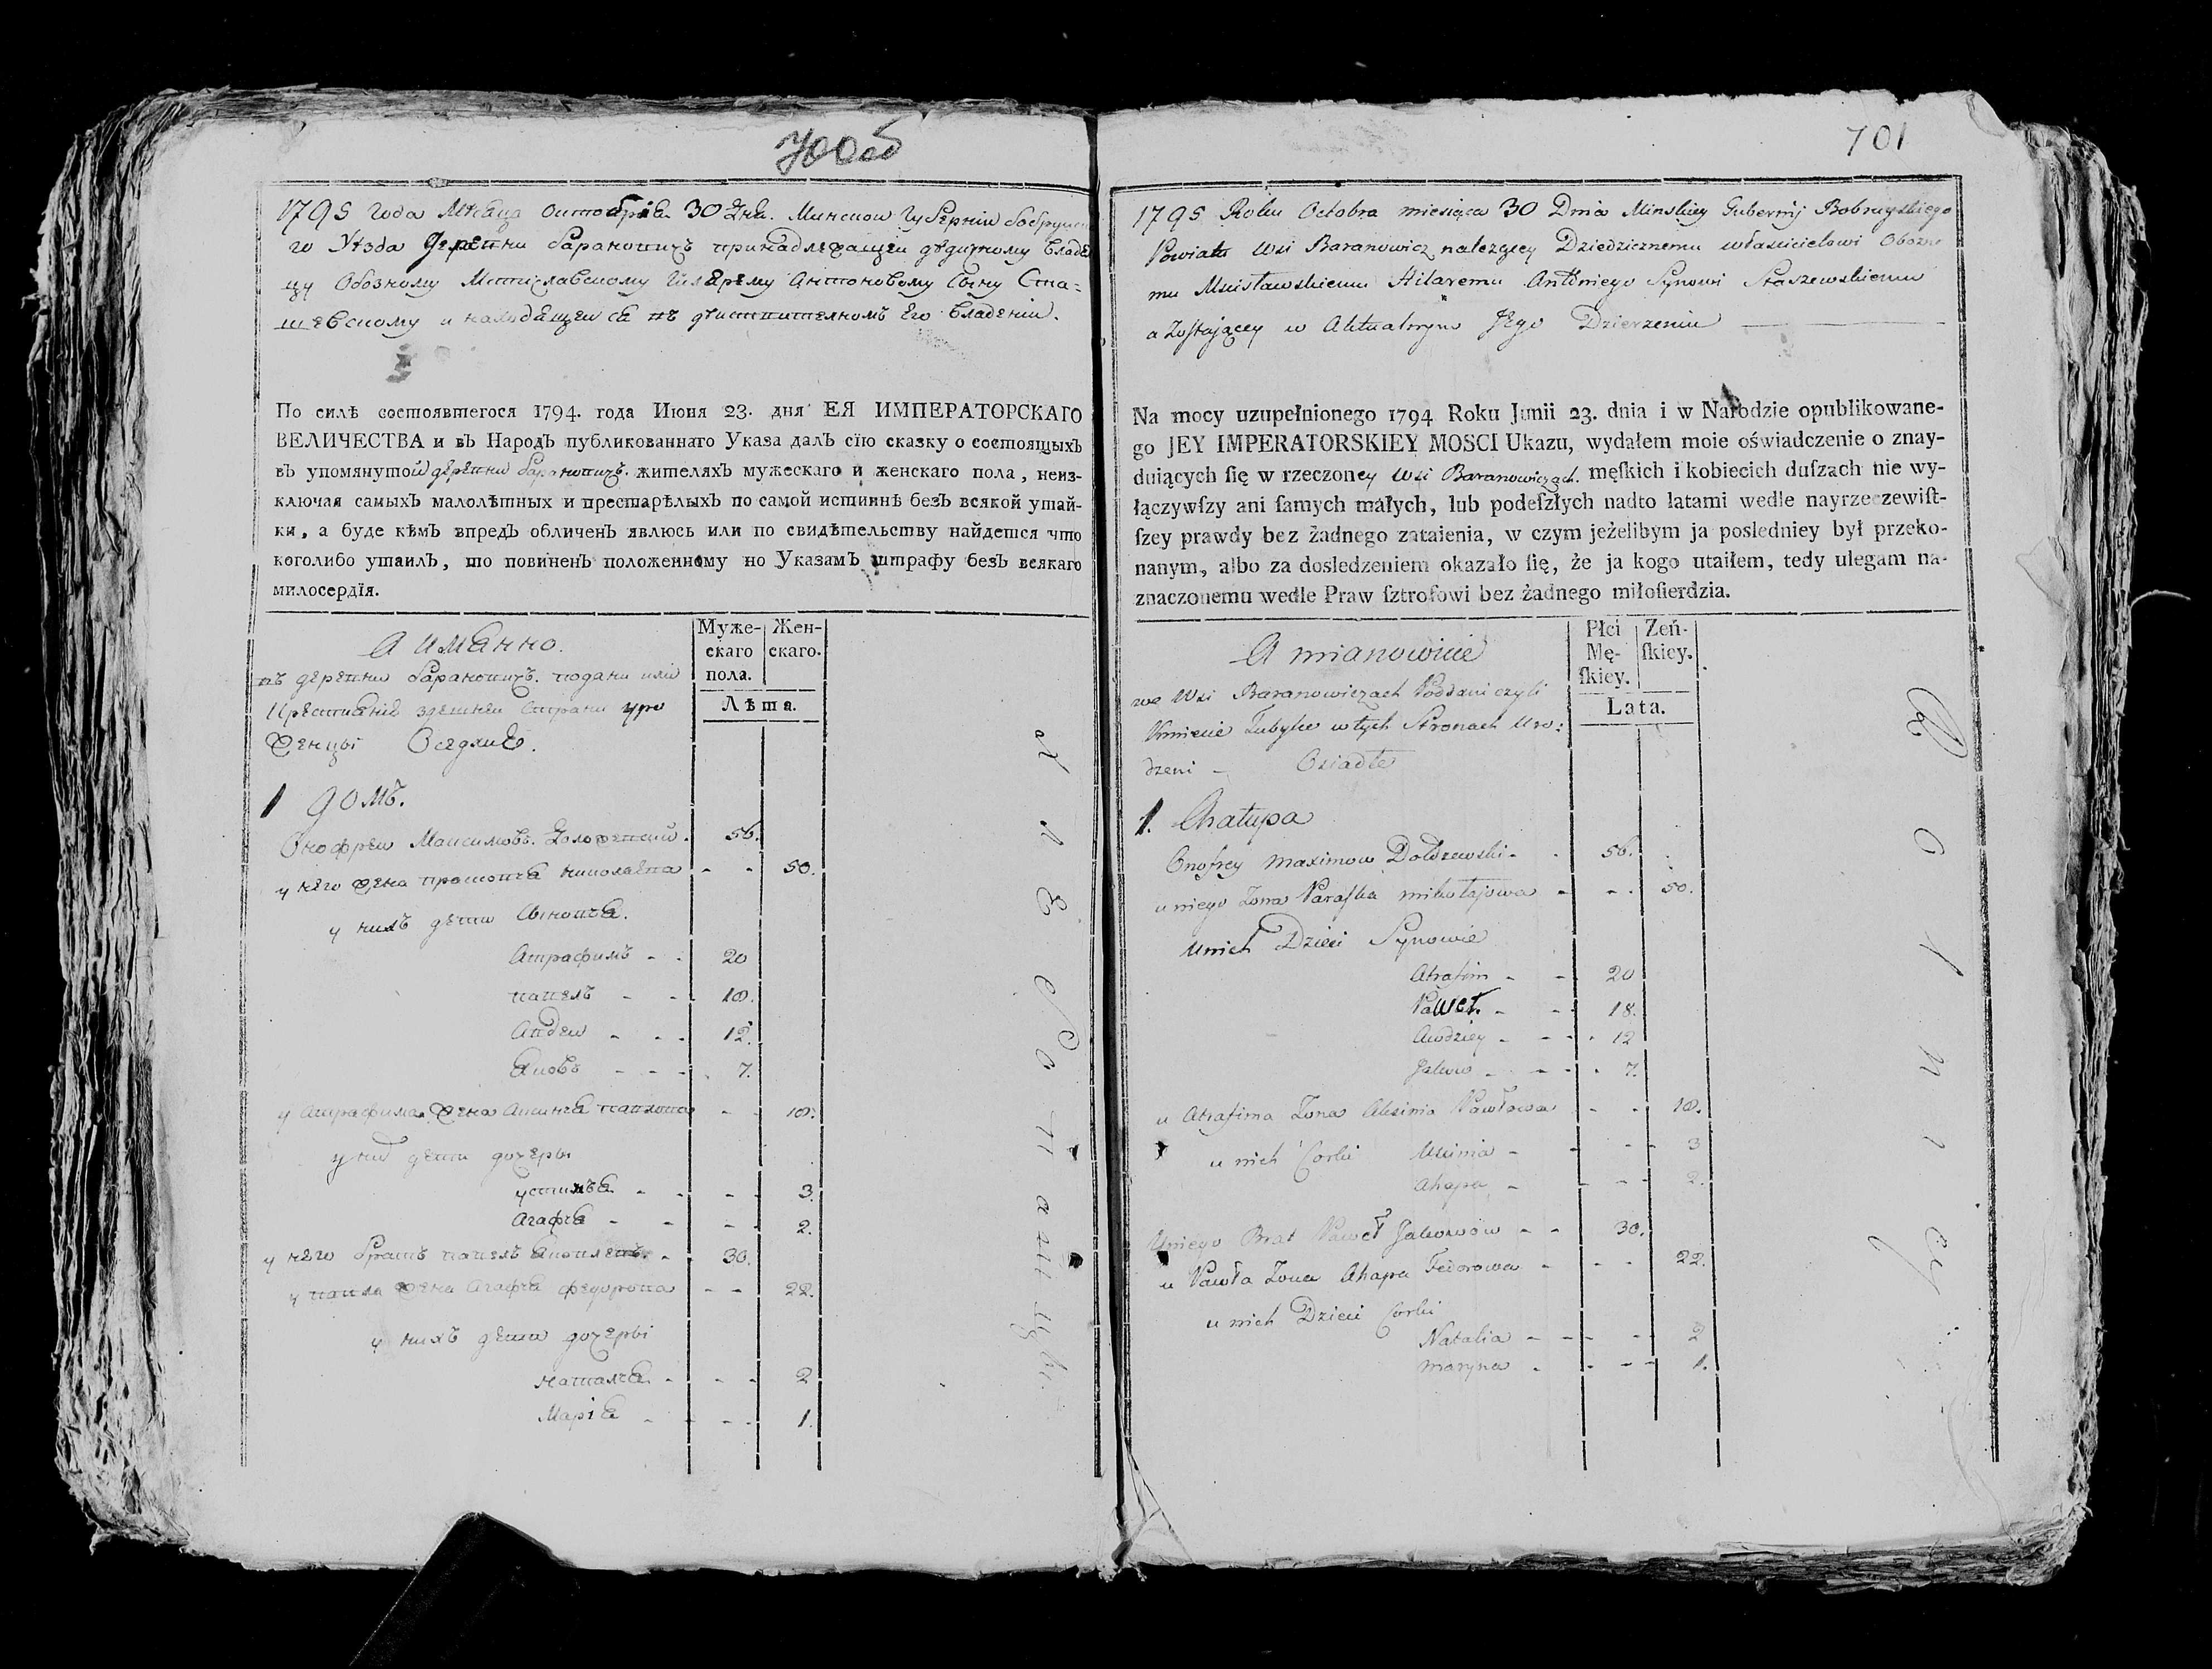 700об
1795 года Мѣсяца октобрія 30 Дня. Минской Губерніи бобруйска
го Уѣзда Деревни барановичъ принадлежащей дѣдичному Владѣ
цу Обозному Мстиславскому Гиляремy Антоновому Сыну Ста=
шевскому и находящей ся въ дѣиствителномъ Его владеніи.
По силѣ состоявшегося 1794. года Июня 23. дня ЕЯ ИМПЕРАТОРСКАГО
ВЕЛИЧЕСТВА и въ Народъ публикованнаго Указа далъ сїю сказку о состоящыхъ
въ упомянутой деревни барановичъ. жителяхъ мужескаго и женскаго пола, неиз-
ключая самыхъ малолѣтных и престарѣлыхъ по самой истиннѣ безъ всякой утай-
ки, а буде кѣмъ впредь обличенъ явлюсь или по свидѣтельству найдется что
коголибо утаилъ, то повиненъ положенному по Указамъ штрафу безъ всякаго
милосердїя.
А имянно.
Муже-
скаго
пола.
Жен-
скаго.
Лѣта.
въ деревни барановичъ. подани или
Крестианіе здешней страни уро
женцы Оседлие.
1 домъ.
Онофреи Максимовъ. Должевский. 56.
у него жена прасковя николаева - - 50.
у нихъ дети Сыновя.
Атрафимъ - - 20
павелъ - - 18.
Авдеи - - - 12.
Яковъ - - - 7.
у Атрафима жена Аксиня павлова - - 18.
у них дети дочеры
устиня - - - - 3.
Агафя - - - - 2.
у него братъ павелъ Яковлевъ. - 30.
у павла жена Агафя федорова - - 22.
у нихъ дети дочеры
наталя - - - 2
Марія - - - - 1.
701
1795 Roku Octobra miesiąca 30 Dnia Minskiey Gubernij Bobruyskiego
Powiatu Wsi Baranowicz należącey Dziedzicznemu właścicielowi Oboźne
mu Mscisławskiemu Hilaremu Antoniego Synowi Staszewskiemu
a Zostającey w Aktualnym Jego Dzierzeniu
Na mocy uzupełnionego 1794 Roku Junii 23. dnia i w Narodzie opublikowane-
go JEY IMPERATORSKIEY MOSCI Ukazu, wydałem moie oświadczenie o znay-
duiących ſię w rzeczoney wsi Baranowiczach. męſkich i kobiecich duſzach nie wy-
łączywſzy ani ſamych małych, lub podeſzłych nadto latami wedle nayrzeczewiſt-
ſzey prawdy bez żadnego zataienia, w czym jeżelibym ja posledniey był przeko-
nanym, albo za dosledzeniem okazało ſię, że ja kogo utaiłem, tedy ulegam na-
znaczonemu wedle Praw ſztrofowi bez żadnego miłoſierdzia.
A mianowicie
Płci
Mę-
ſkiey.
Zeń-
ſkiey.
Lata.
we Wsi Baranowiczach Poddani czyli
Kmiecie Tubylce w tych Stronach Uro:
dzeni - Osiadłe
1. Chatupa
Onofrey Maximow Dołdzewski - 56.
u niego Żona Paraska Mikołajowa - - - 50.
u nich Dzieci Synowie
Atrafim - - 20
Paweł. - - 18.
Awdziey - - - 12
Jakow - - - - 7.
u Atrafima Żona Aksinia Pawłowa - - 18.
u nich Corki Uscinia - - - - 3
Ahapa - - - - 2.
U niego Brat Paweł Jakowów - - 30.
u Pawła Żona Ahapa Fedorowa - - - 22.
u nich Dzieci Corki
Natalia - - - - 2
Maryna - - - - 1.